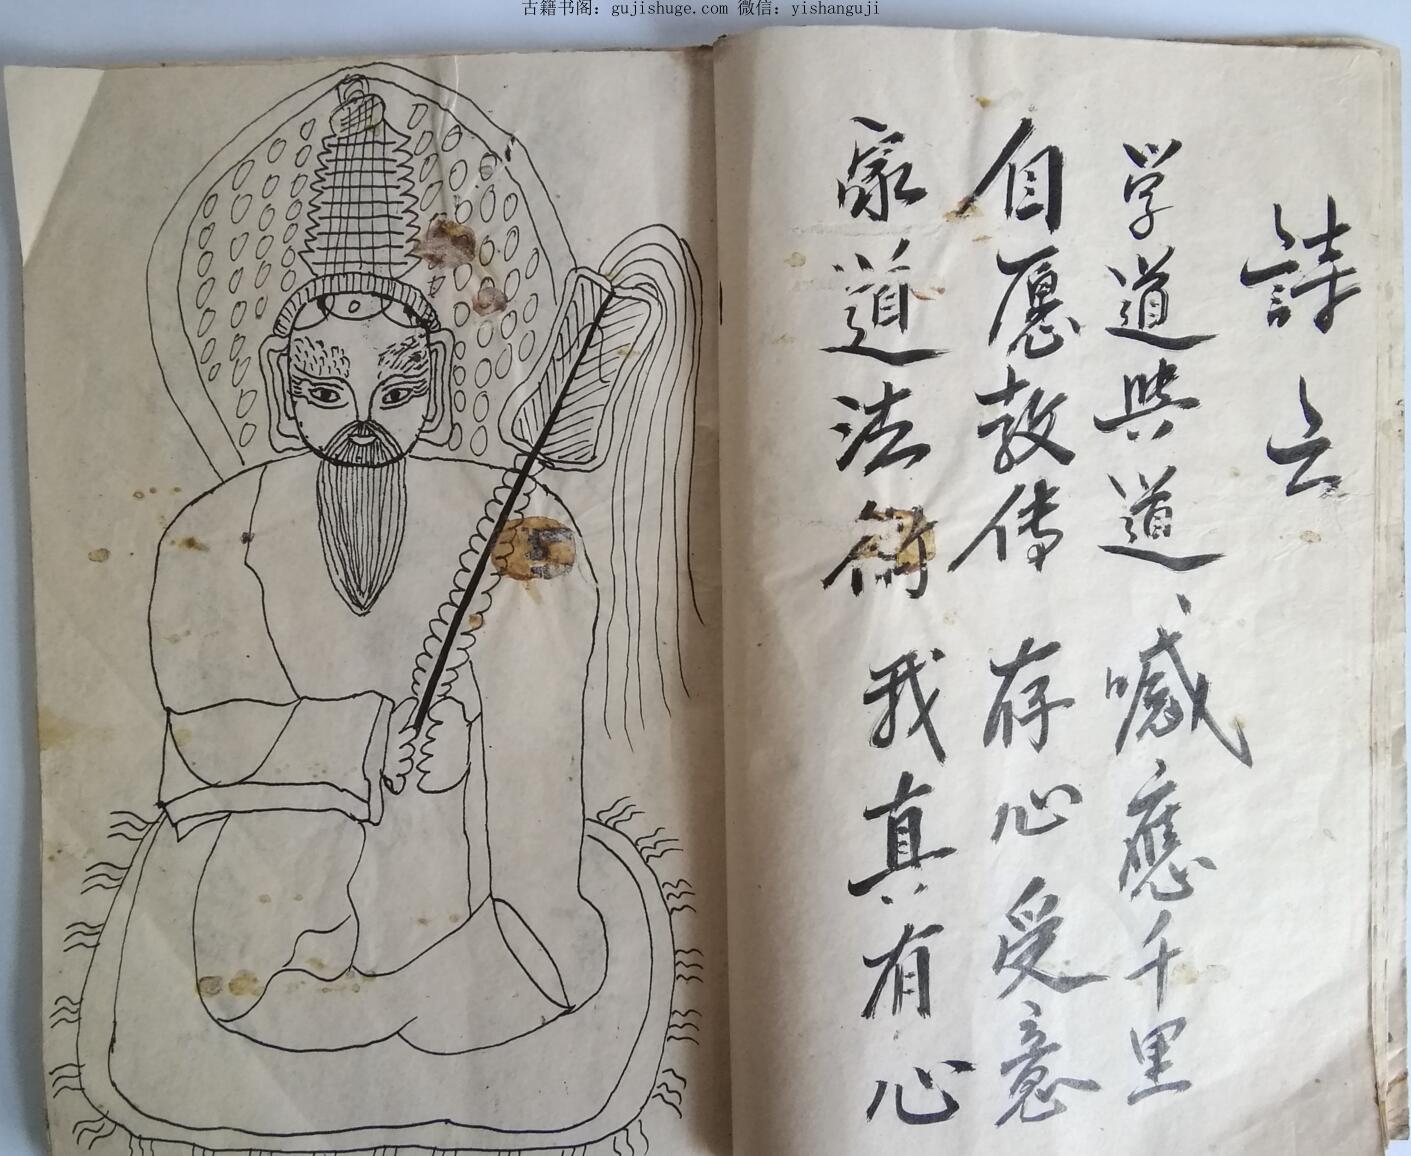 古籍书阁：gujishuge.com 微信：yishanguji
詩云
学道與道喊應千里
自愿教传存心受意
家道法術我真有心